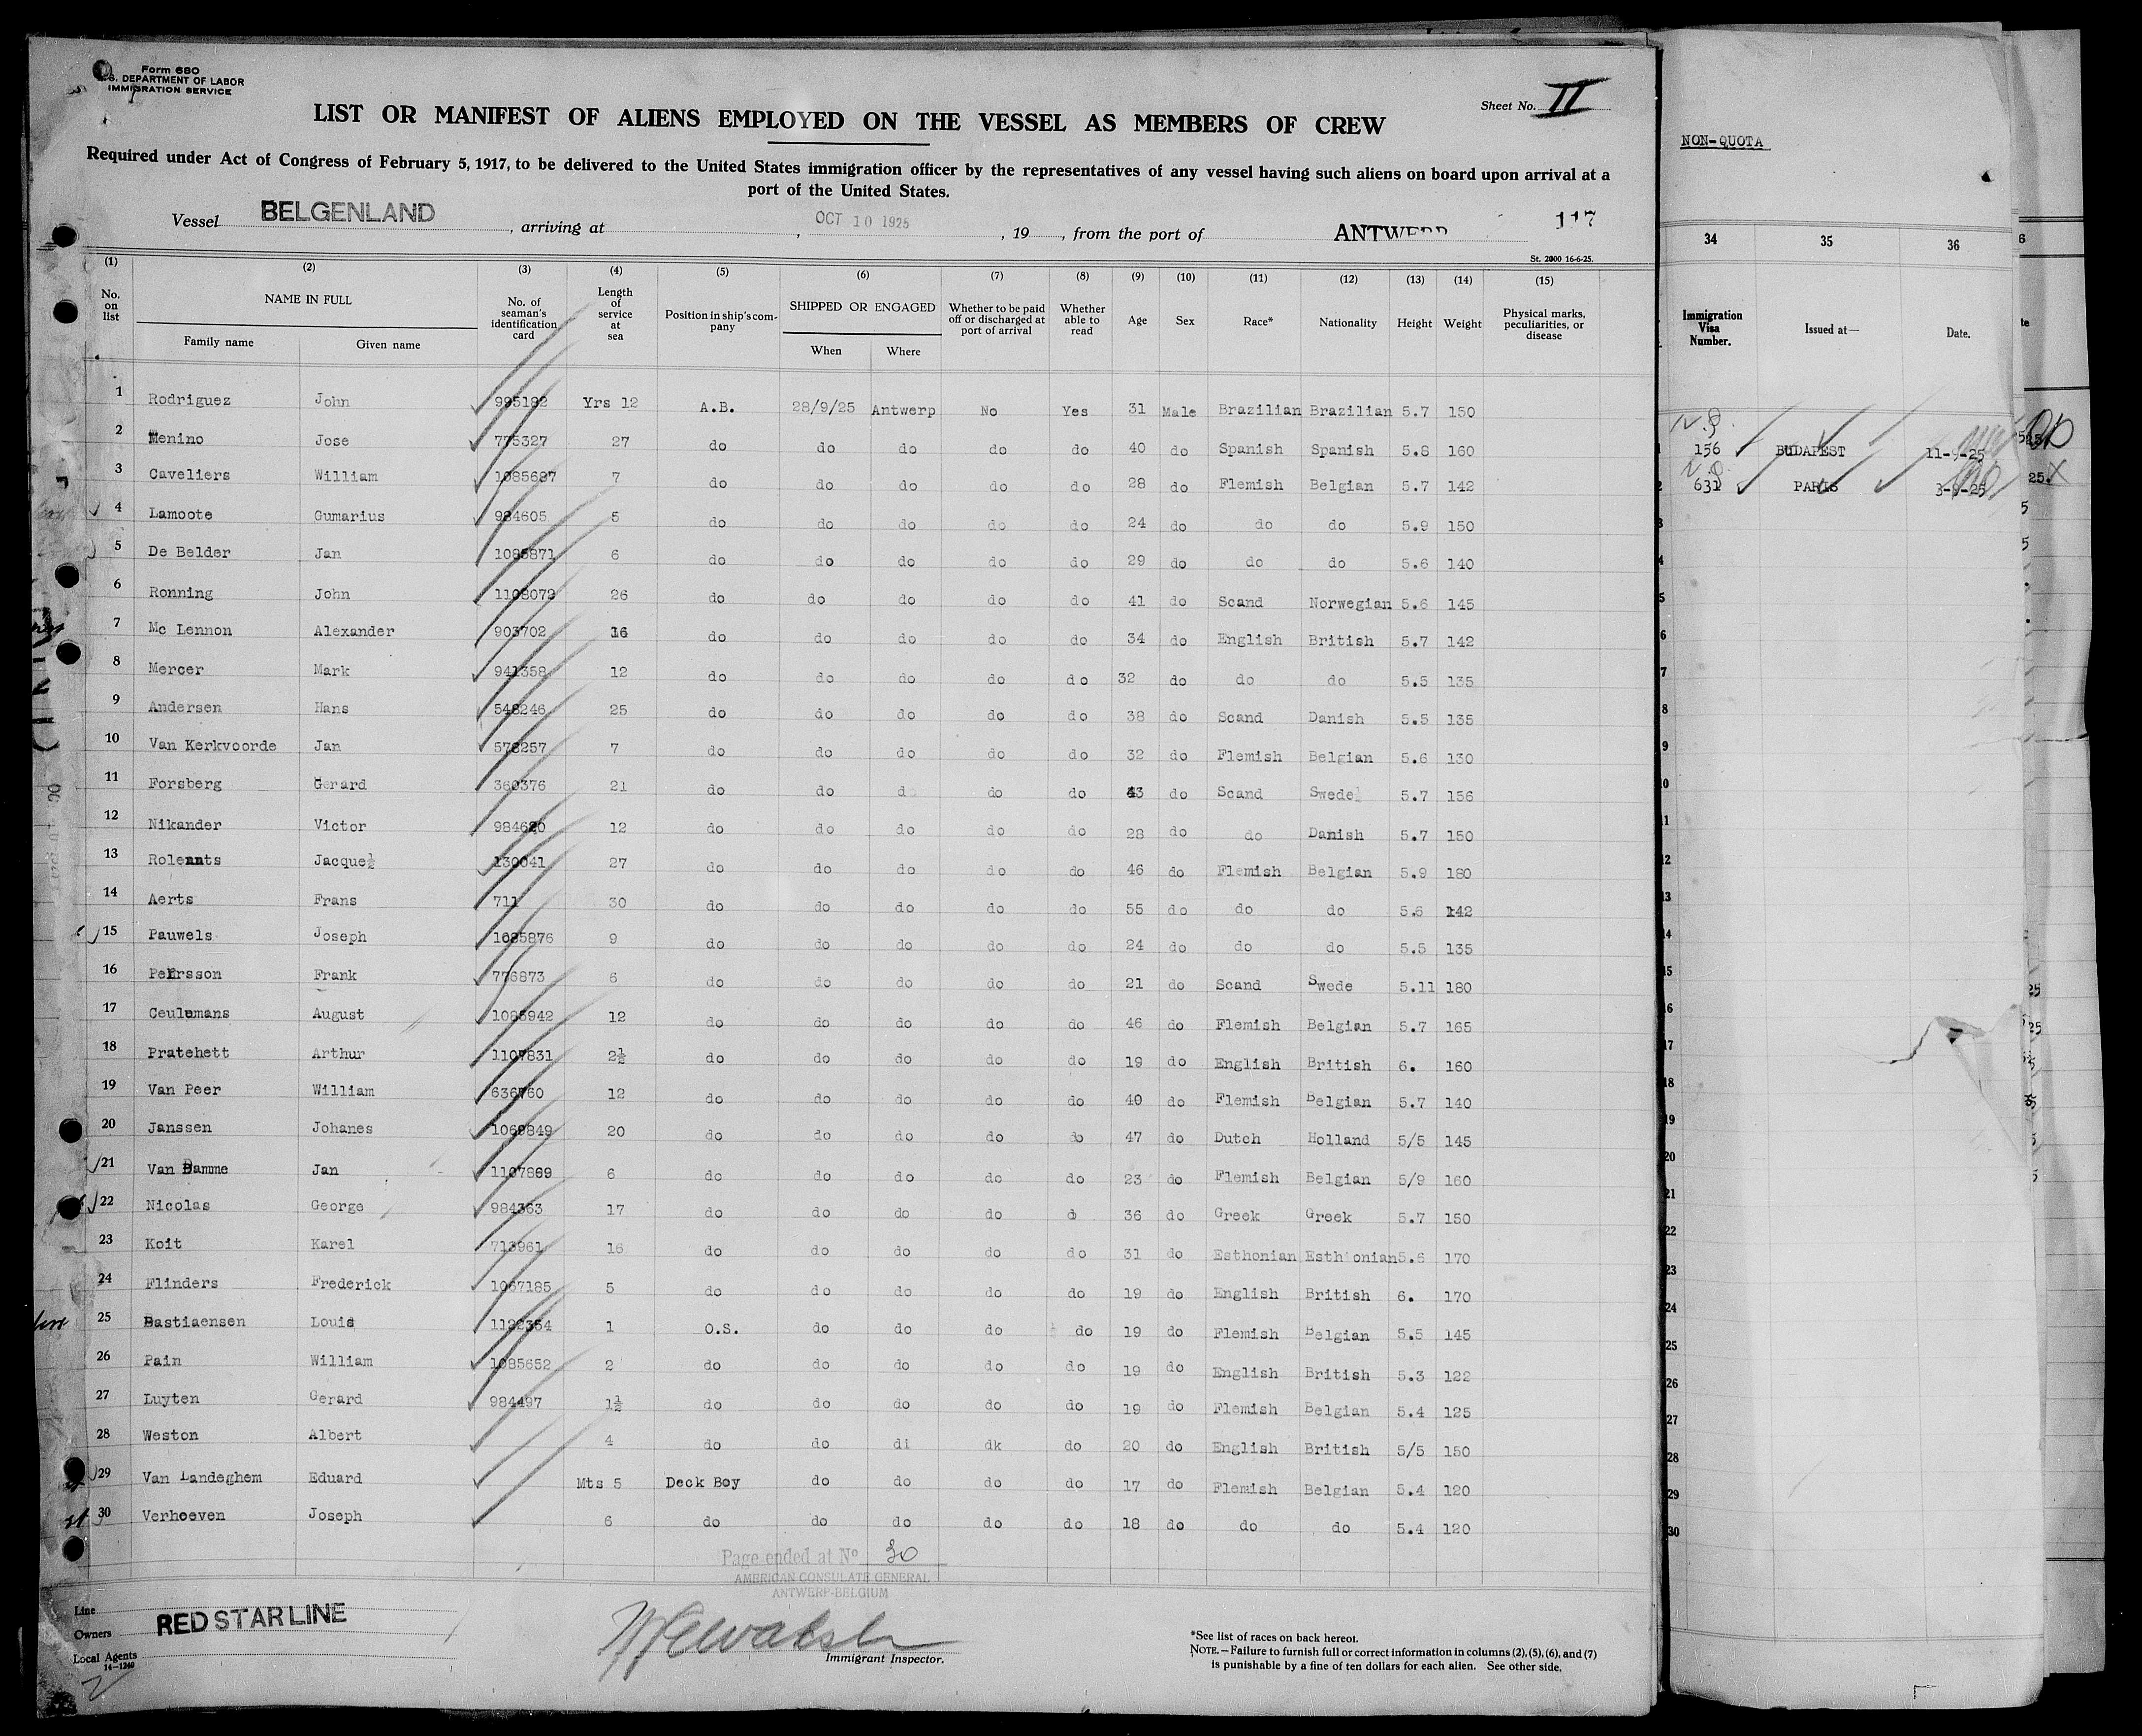 Form 680
U.S. DEPARTMENT OF LABOR
IMMIGRATION SERVICE
Sheet No. II
LIST OR MANIFEST OF ALIENS EMPLOYED ON THE VESSEL AS MEMBERS OF CREW
Required under Act of Congress of February 5, 1917, to be delivered to the United States immigration officer by the representatives of any vessel having such aliens on board upon arrival at a
port of the United States.
Vessel BELGENLAND, arriving at , OCT 10 1925, 19 , from the port of ANTWERP 117
St. 2000 16-6-25.
(1) (2) (3) (4) (5) (6) (7) (8) (9) (10) (11) (12) (13) (14) (15)
No. on list NAME IN FULL Family name Given name No. of seaman's identification card Length of service at sea Position in ship's company SHIPPED OR ENGAGED When Where Whether to be paid off or discharged at port of arrival Whether able to read Age Sex Race* Nationality Height Weight Physical marks, peculiarities, or disease
1 Rodriguez John 995182 Yrs 12 A.B. 28/9/25 Antwerp No Yes 31 Male Brazilian Brazilian 5.7 150
2 Menino Jose 775327 27 do do do do do 40 do Spanish Spanish 5.8 160
3 Caveliers William 1085687 7 do do do do do 28 do Flemish Belgian 5.7 142
4 Lamoote Gumarius 984605 5 do do do do do 24 do do do 5.9 150
5 De Belder Jan 1085871 6 do do do do do 29 do do do 5.6 140
6 Ronning John 1108079 26 do do do do do 41 do Scand Norwegian 5.6 145
7 Mc Lennon Alexander 903702 16 do do do do do 34 do English British 5.7 142
8 Mercer Mark 941358 12 do do do do do 32 do do do 5.5 135
9 Andersen Hans 548246 25 do do do do do 38 do Scand Danish 5.5 135
10 Van Kerkvoorde Jan 578257 7 do do do do do 32 do Flemish Belgian 5.6 130
11 Forsberg Gerard 360376 21 do do d do do 43 do Scand Swede 5.7 156
12 Nikander Victor 984620 12 do do do do do 28 do do Danish 5.7 150
13 Roleants Jacque½ 130041 27 do do do do do 46 do Flemish Belgian 5.9 180
14 Aerts Frans 711 30 do do do do do 55 do do do 5.6 142
15 Pauwels Joseph 1085876 9 do do do do do 24 do do do 5.5 135
16 Pehrsson Frank 776873 6 do do do do do 21 do Scand Swede 5.11 180
17 Ceulemans August 1085942 12 do do do do do 46 do Flemish Belgian 5.7 165
18 Pratehett Arthur 1107831 2½ do do do do do 19 do English British 6. 160
19 Van Peer William 636760 12 do do do do do 40 do Flemish Belgian 5.7 140
20 Janssen Johanes 1069849 20 do do do do do 47 do Dutch Holland 5/5 145
21 Van Damme Jan 1107869 6 do do do do do 23 do Flemish Belgian 5/9 160
22 Nicolas George 984363 17 do do do do d 36 do Greek Greek 5.7 150
23 Koit Karel 713961 16 do do do do do 31 do Esthonian Esthionian 5.6 170
24 Flinders Frederick 1067185 5 do do do do do 19 do English British 6. 170
25 Bastiaensen Louis 1122354 1 O.S. do do do do 19 do Flemish Belgian 5.5 145
26 Pain William 1085652 2 do do do do do 19 do English British 5.3 122
27 Luyten Gerard 984497 1½ do do do do do 19 do Flemish Belgian 5.4 125
28 Weston Albert 4 do do di dk do 20 do English British 5/5 150
29 Van Landeghem Eduard Mts 5 Deck Boy do do do do 17 do Flemish Belgian 5.4 120
30 Verhoeven Joseph 6 do do do do do 18 do do do 5.4 120
Page ended at No 30
AMERICAN CONSULATE GENERAL
ANTWERP-BELGIUM
Line
Owners RED STAR LINE
Local Agents
14-1240
Immigrant Inspector.
*See list of races on back hereof.
NOTE.—Failure to furnish full or correct information in columns (2), (5), (6), and (7)
is punishable by a fine of ten dollars for each alien. See other side.
NON-QUOTA
34 35 36
Immigration Visa Number. Issued at— Date.
156 BUDAPEST 11-9-25
631 PARIS 3-9-25
3
4
5
6
7
8
9
10
11
12
13
14
15
16
17
18
19
20
21
22
23
24
25
26
27
28
29
30